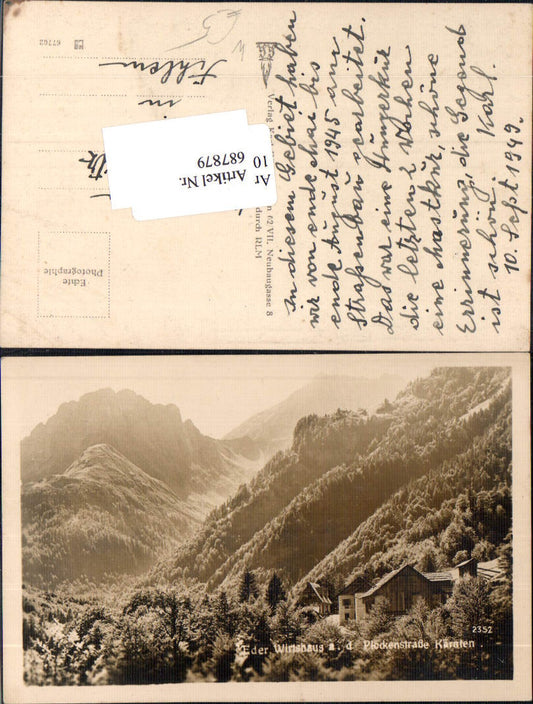 in diesem Gebiet haben
wir von ende Mai bis
ende August 1945 am
Straßenbau gearbeitet.
Das war eine Hungerkür
die letzten 2 Wochen
eine Mastkür, schöne
Errinnerung, die Gegend
ist schön, Karl.
10. Sept 1949.
67762
in
Verlag
n 62/VII, Neubaugasse 8
durch RLM
Echte
Photographie
Ar Artikel Nr.
10 687879
2352
Eder Wirtshaus a. d. Plöckenstraße Kärnten